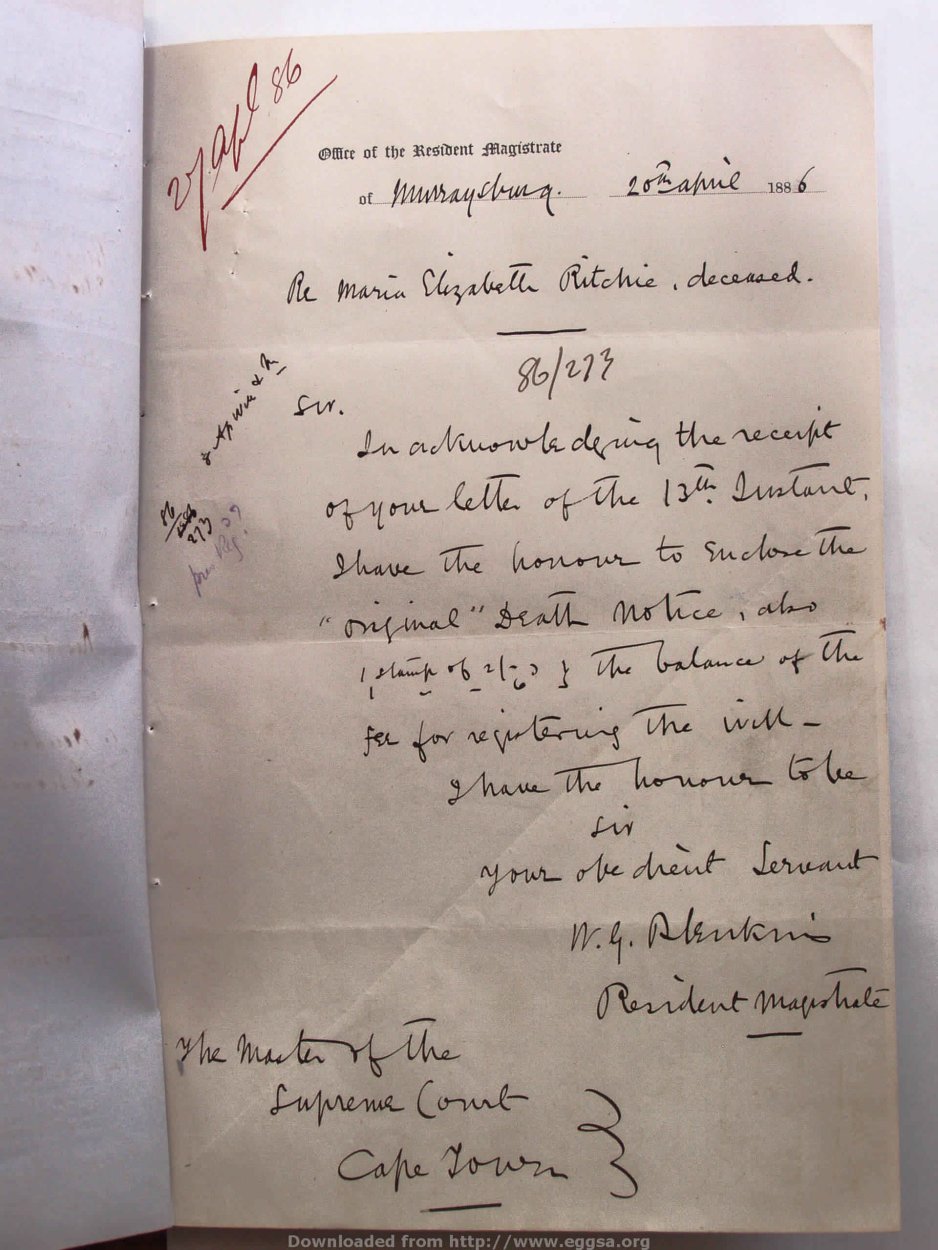 27 Apl 86
Office of the Resident Magistrate
of Murraysburg. 20th April 1886
Re Maria Elizabeth Ritchie, deceased.
86/273
Sir.
In acknowledging the receipt
of your letter of the 13th. Instant,
I have the honour to enclose the
"original" Death Notice, also
stamp of the balance of the
fee for registering the will –
I have the honour to be
Sir
Your obedient Servant
W. G. Blenkins
Resident Magistrate
The Master of the
Supreme Court
Cape Town
86/273
Downloaded from http://www.eggsa.org